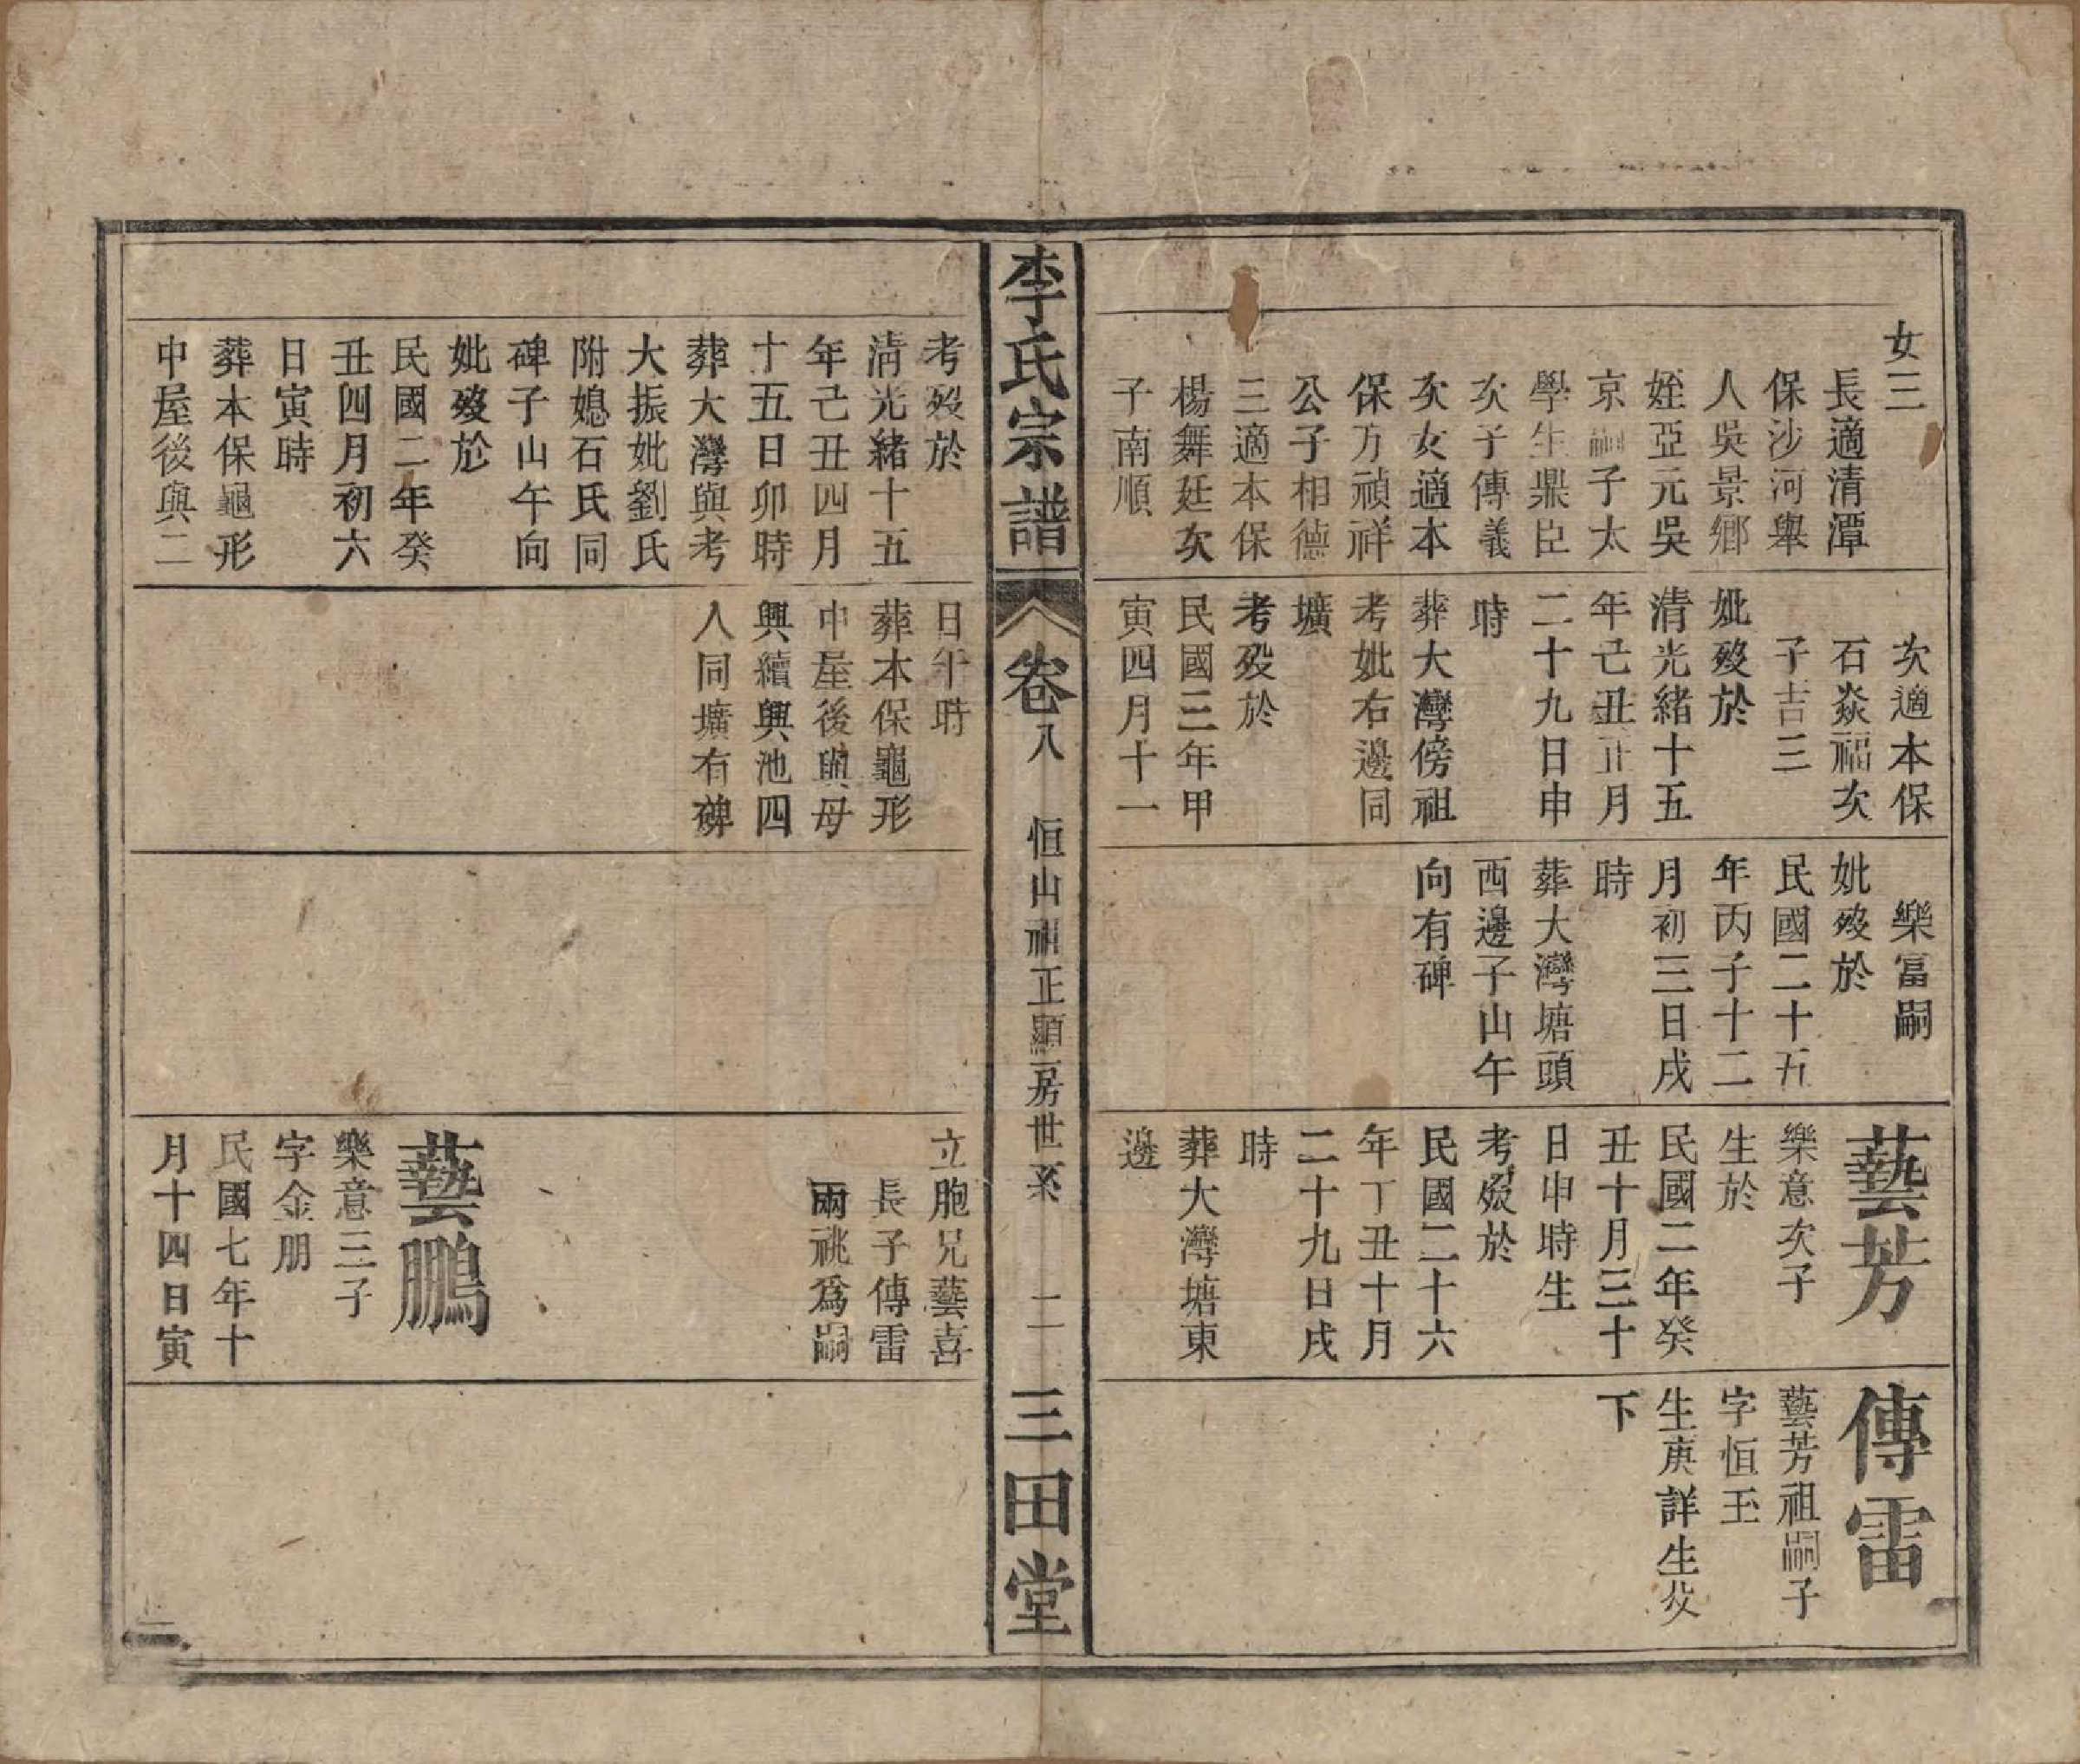 女三
長適清潭
保沙河舉
人吳景鄉
姪亞元吳
京嗣子太
學生鼎臣
次子傳義
次女適本
保方禎祥
公子相德
三適本保
楊舞廷次
子南順
次適本保
石焱福次
子吉三
妣歿於
清光緒十五
年己丑正月
二十九日申
時
葬大灣傍祖
考妣右邊同
壙
考歿於
民國三年甲
寅四月十一
樂富嗣
妣歿於
民國二十五
年丙子十二
月初三日戌
時
葬大灣塘頭
西邊子山午
向有碑
藝芳
樂意次子
生於
民國二年癸
丑十月三十
日申時生
考歿於
民國二十六
年丁丑十月
二十九日戌
時
葬大灣塘東
邊
傳雷
藝芳祖嗣子
字恒玉
生庚詳生父
下
李氏宗譜
卷八
恒山祖正顯二房世系
二
三田堂
考歿於
清光緒十五
年己丑四月
十五日卯時
葬大灣與考
大振妣劉氏
附媳石氏同
碑子山午向
妣歿於
民國二年癸
丑四月初六
日寅時
葬本保龜形
中屋後與二
日午時
葬本保龜形
中屋後與母
興續興池四
人同壙有碑
立胞兄藝喜
長子傳雷
兩祧爲嗣
藝鵬
樂意三子
字金朋
民國七年十
月十四日寅